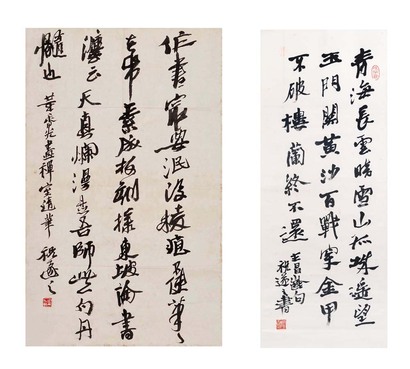 作書最要泯没稜痕不使筆筆
在帋素成板刻樣東坡論書
灋云天真爛漫是吾師此句丹
髓也 董香光畫禪室随筆 祝遂之
青海長雲暗雪山孤城遥望
玉門關黄沙百戰穿金甲
不破樓蘭終不還
王昌齡句
祝遂之書